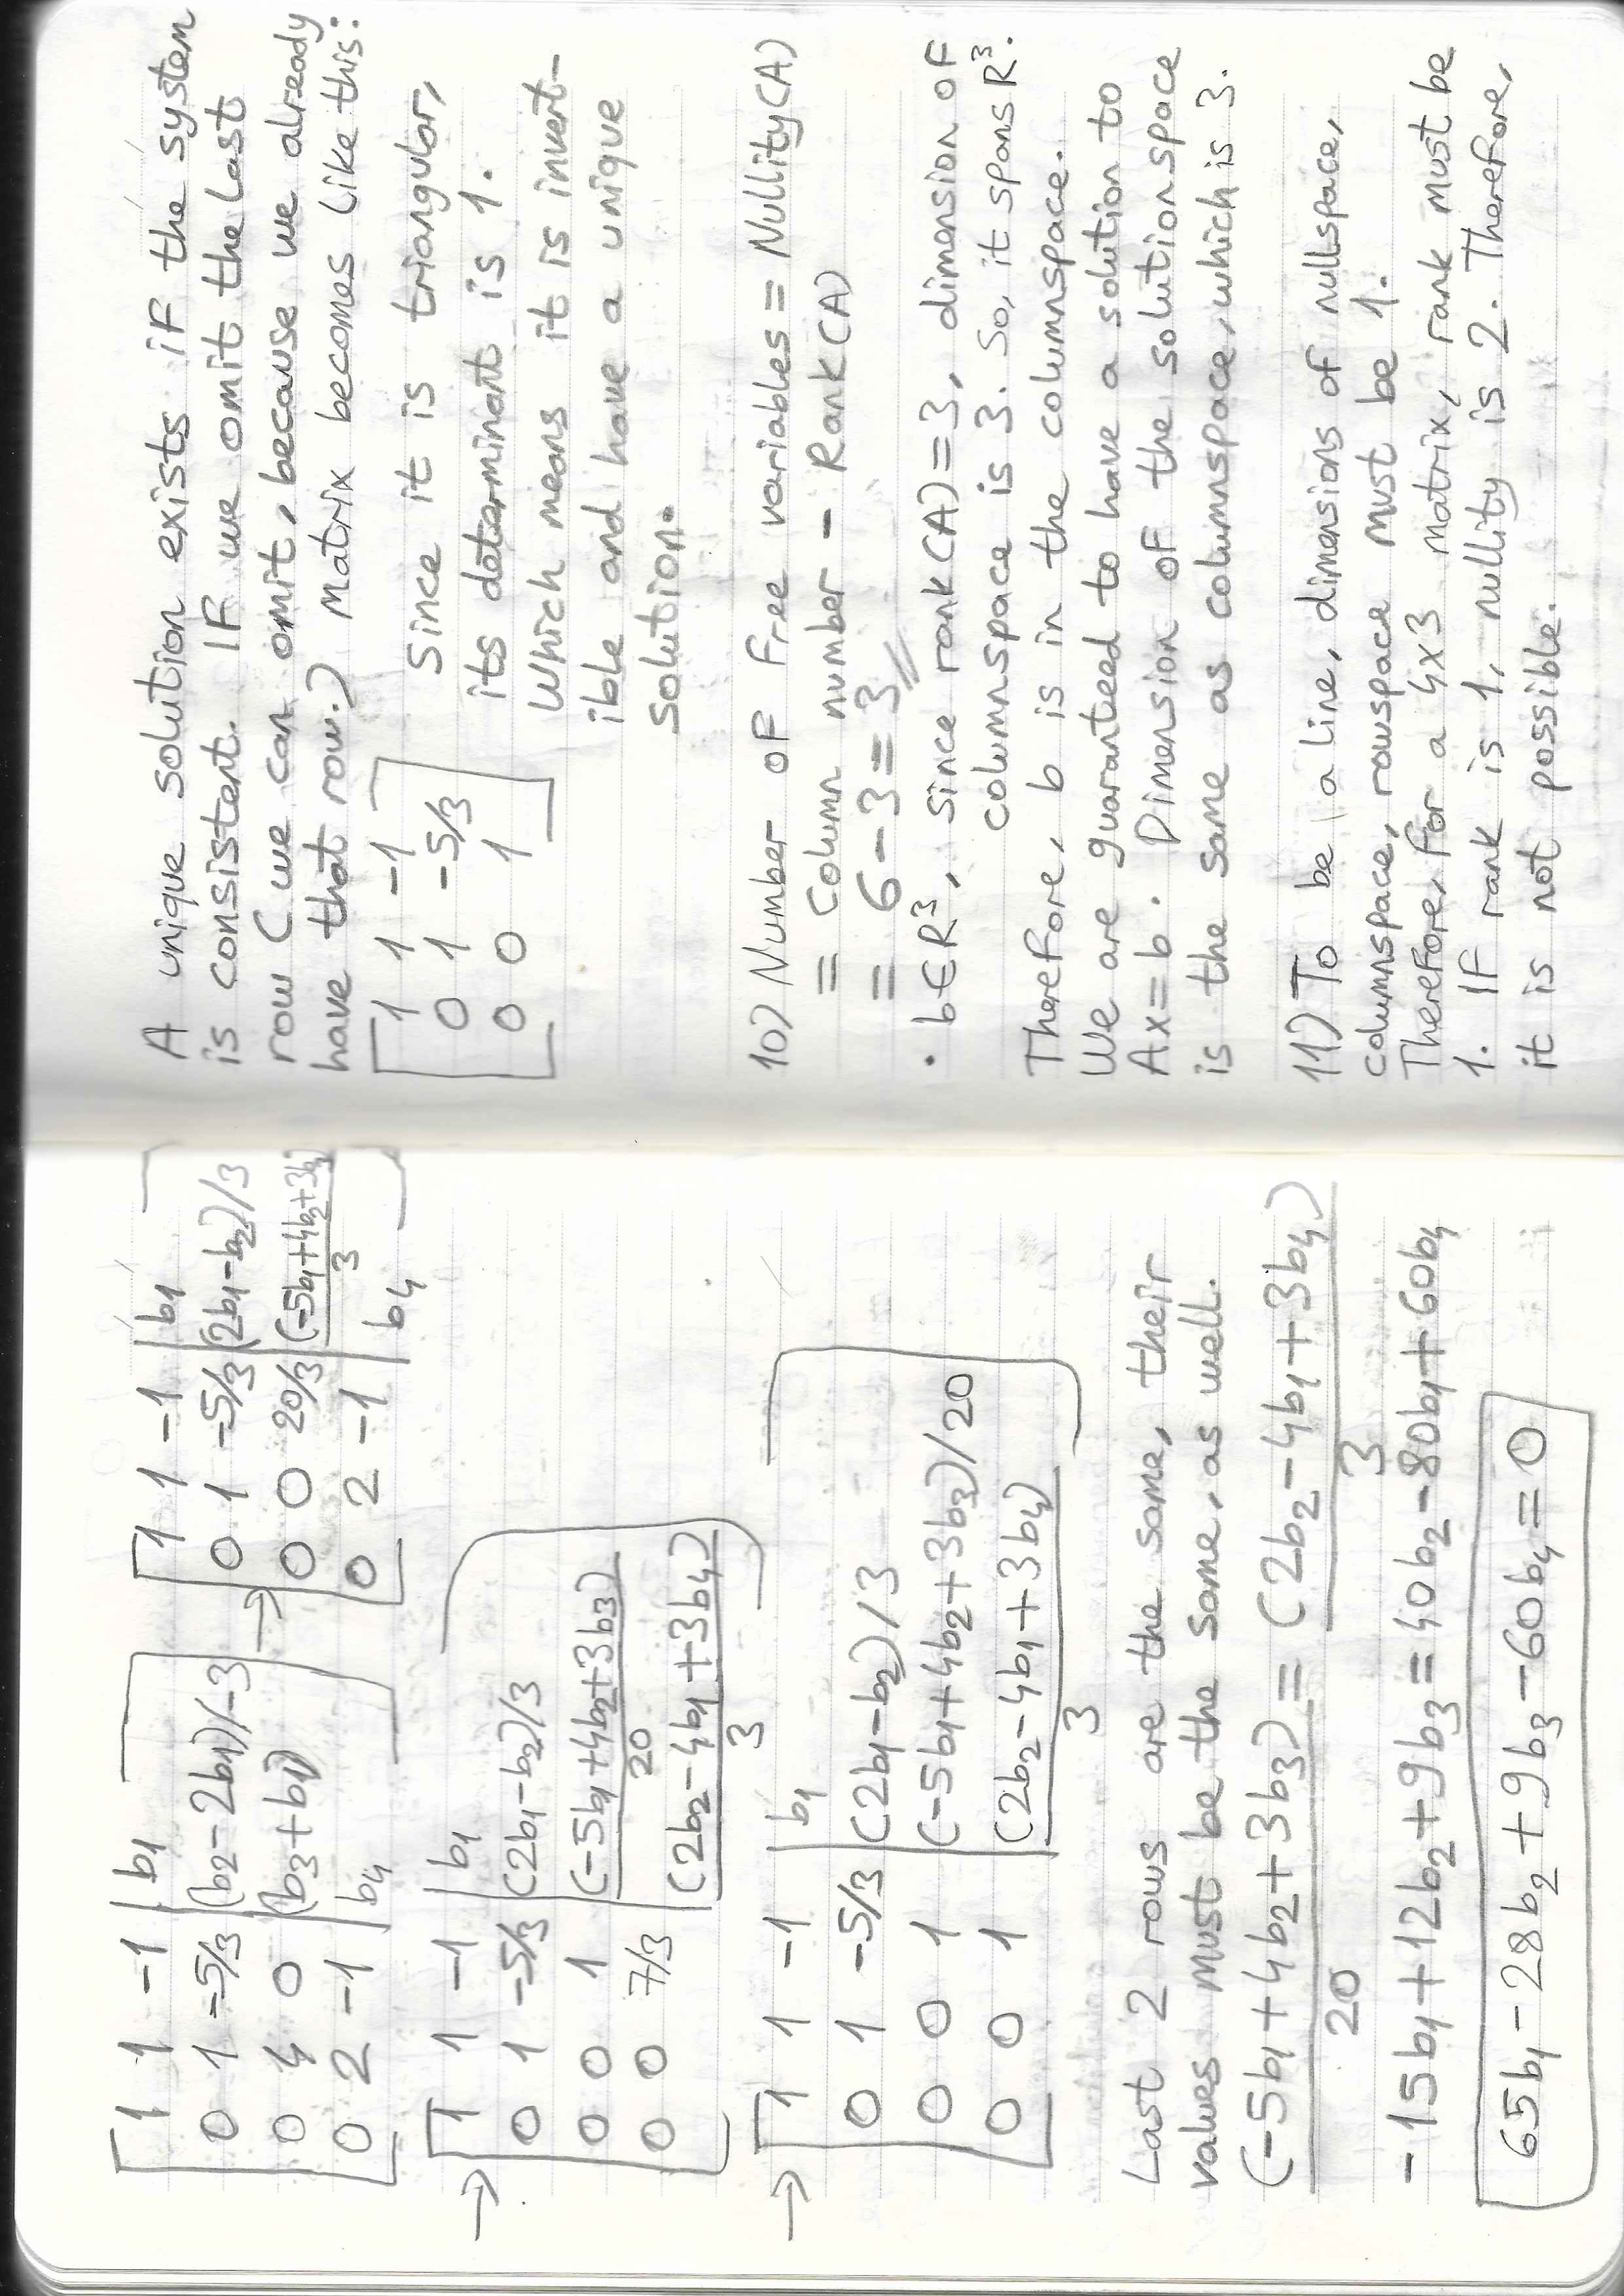 1 1 -1 | b1
0 1 -5/3 | (b2-2b1)/-3
0 4 0 | (b3+b1)
0 2 -1 | b4
→ 1 1 -1 | b1
0 1 -5/3 | (2b1-b2)/3
0 0 20/3 | (-5b1+4b2+3b3)/3
0 2 -1 | b4
→ 1 1 -1 | b1
0 1 -5/3 | (2b1-b2)/3
0 0 1 | (-5b1+4b2+3b3)/20
0 0 7/3 | (2b2-4b1+3b4)/3
→ 1 1 -1 | b1
0 1 -5/3 | (2b1-b2)/3
0 0 1 | (-5b1+4b2+3b3)/20
0 0 1 | (2b2-4b1+3b4)/3
Last 2 rows are the same, their
values must be the same, as well.
(-5b1+4b2+3b3)/20 = (2b2-4b1+3b4)/3
-15b1+12b2+9b3=40b2-80b1+60b4
65b1-28b2+9b3-60b4=0
A unique solution exists if the system
is consistent. If we omit the last
row (we can omit, because we already
have that row.) Matrix becomes like this:
1 1 -1
0 1 -5/3
0 0 1
Since it is triangular,
its determinant is 1.
Which means it is invert-
ible and have a unique
solution.
10) Number of free variables = Nullity(A)
= Column number - Rank(A)
= 6-3=3//
• b∈R³, since rank(A)=3, dimension of
columnspace is 3. So, it spans R³.
Therefore, b is in the columnspace.
We are guaranteed to have a solution to
Ax=b. Dimension of the solution space
is the same as columnspace, which is 3.
11) To be a line, dimensions of nullspace,
columnspace, rowspace must be 1.
Therefore, for a 4x3 matrix, rank must be
1. If rank is 1, nullity is 2. Therefore,
it is not possible.